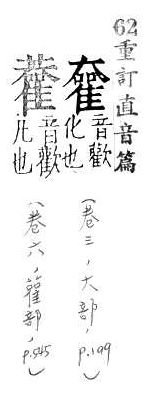 62重訂直音篇
音歡
化也
(卷三,大部,p.199)
音歡
也
(卷六,雚部,p.545)